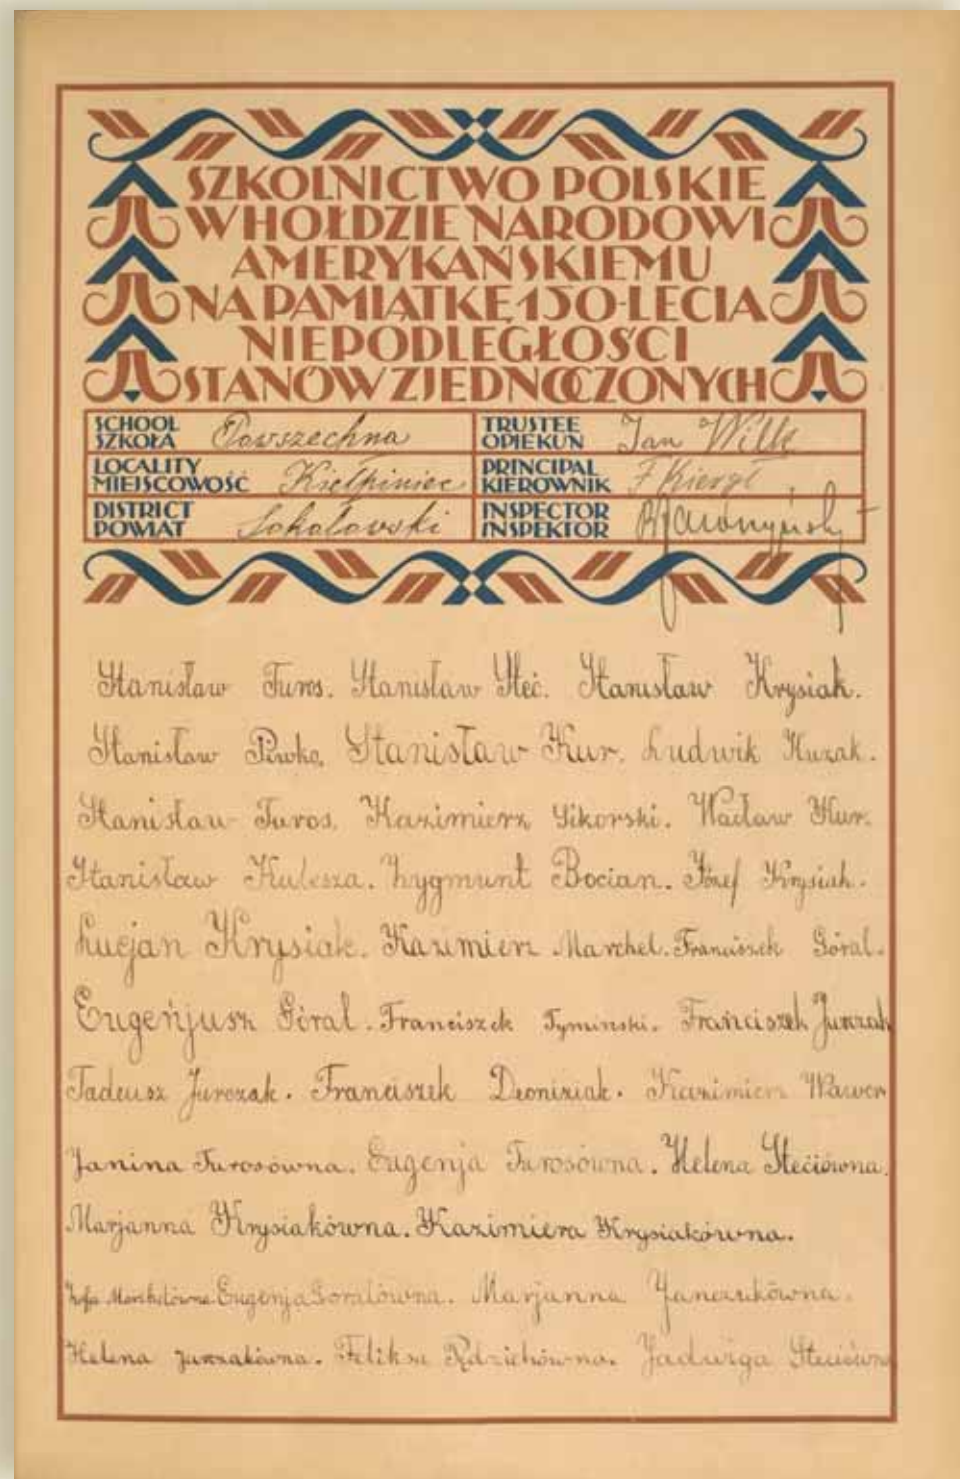 SZKOLNICTWO POLSKIE
W HOŁDZIE NARODOWI
AMERYKAŃSKIEMU
NA PAMIĄTKĘ 150-LECIA
NIEPODLEGŁOŚCI
STANÓW ZJEDNOCZONYCH
SCHOOL SZKOŁA Powszechna
TRUSTEE OPIEKUN Jan Wilk
LOCALITY MIEJSCOWOŚĆ Kiełpiniec
PRINCIPAL KIEROWNIK F
DISTRICT POWIAT Sokołowski
INSPECTOR INSPEKTOR
Stanisław Turos. Stanisław Steć. Stanisław Krysiak.
Stanisław Piwko, Stanisław Kur. Ludwik Kuzak.
Stanisław Turos. Kazimierz Sikorski. Wacław Kur.
Stanisław Kulesza. Zygmunt Bocian. Józef Krysiak.
Lucjan Krysiak. Kazimierz Marchel. Franciszek Góral.
Eugeńjusz Góral. Franciszek Tyminski. Franciszek Jurczak
Tadeusz Jurczak. Franciszek Deoniziak. Kazimierz Wawer
Janina Turosówna. Eugenja Turosówna. Helena Steciówna.
Marjanna Krysiakówna. Kazimiera Krysiakówna.
Zofja Marchelówna Eugenja Goralówna. Marjanna Janczukówna.
Helena Jurczakówna. Feliksa Rdzichówna. Jadwiga Steciówna